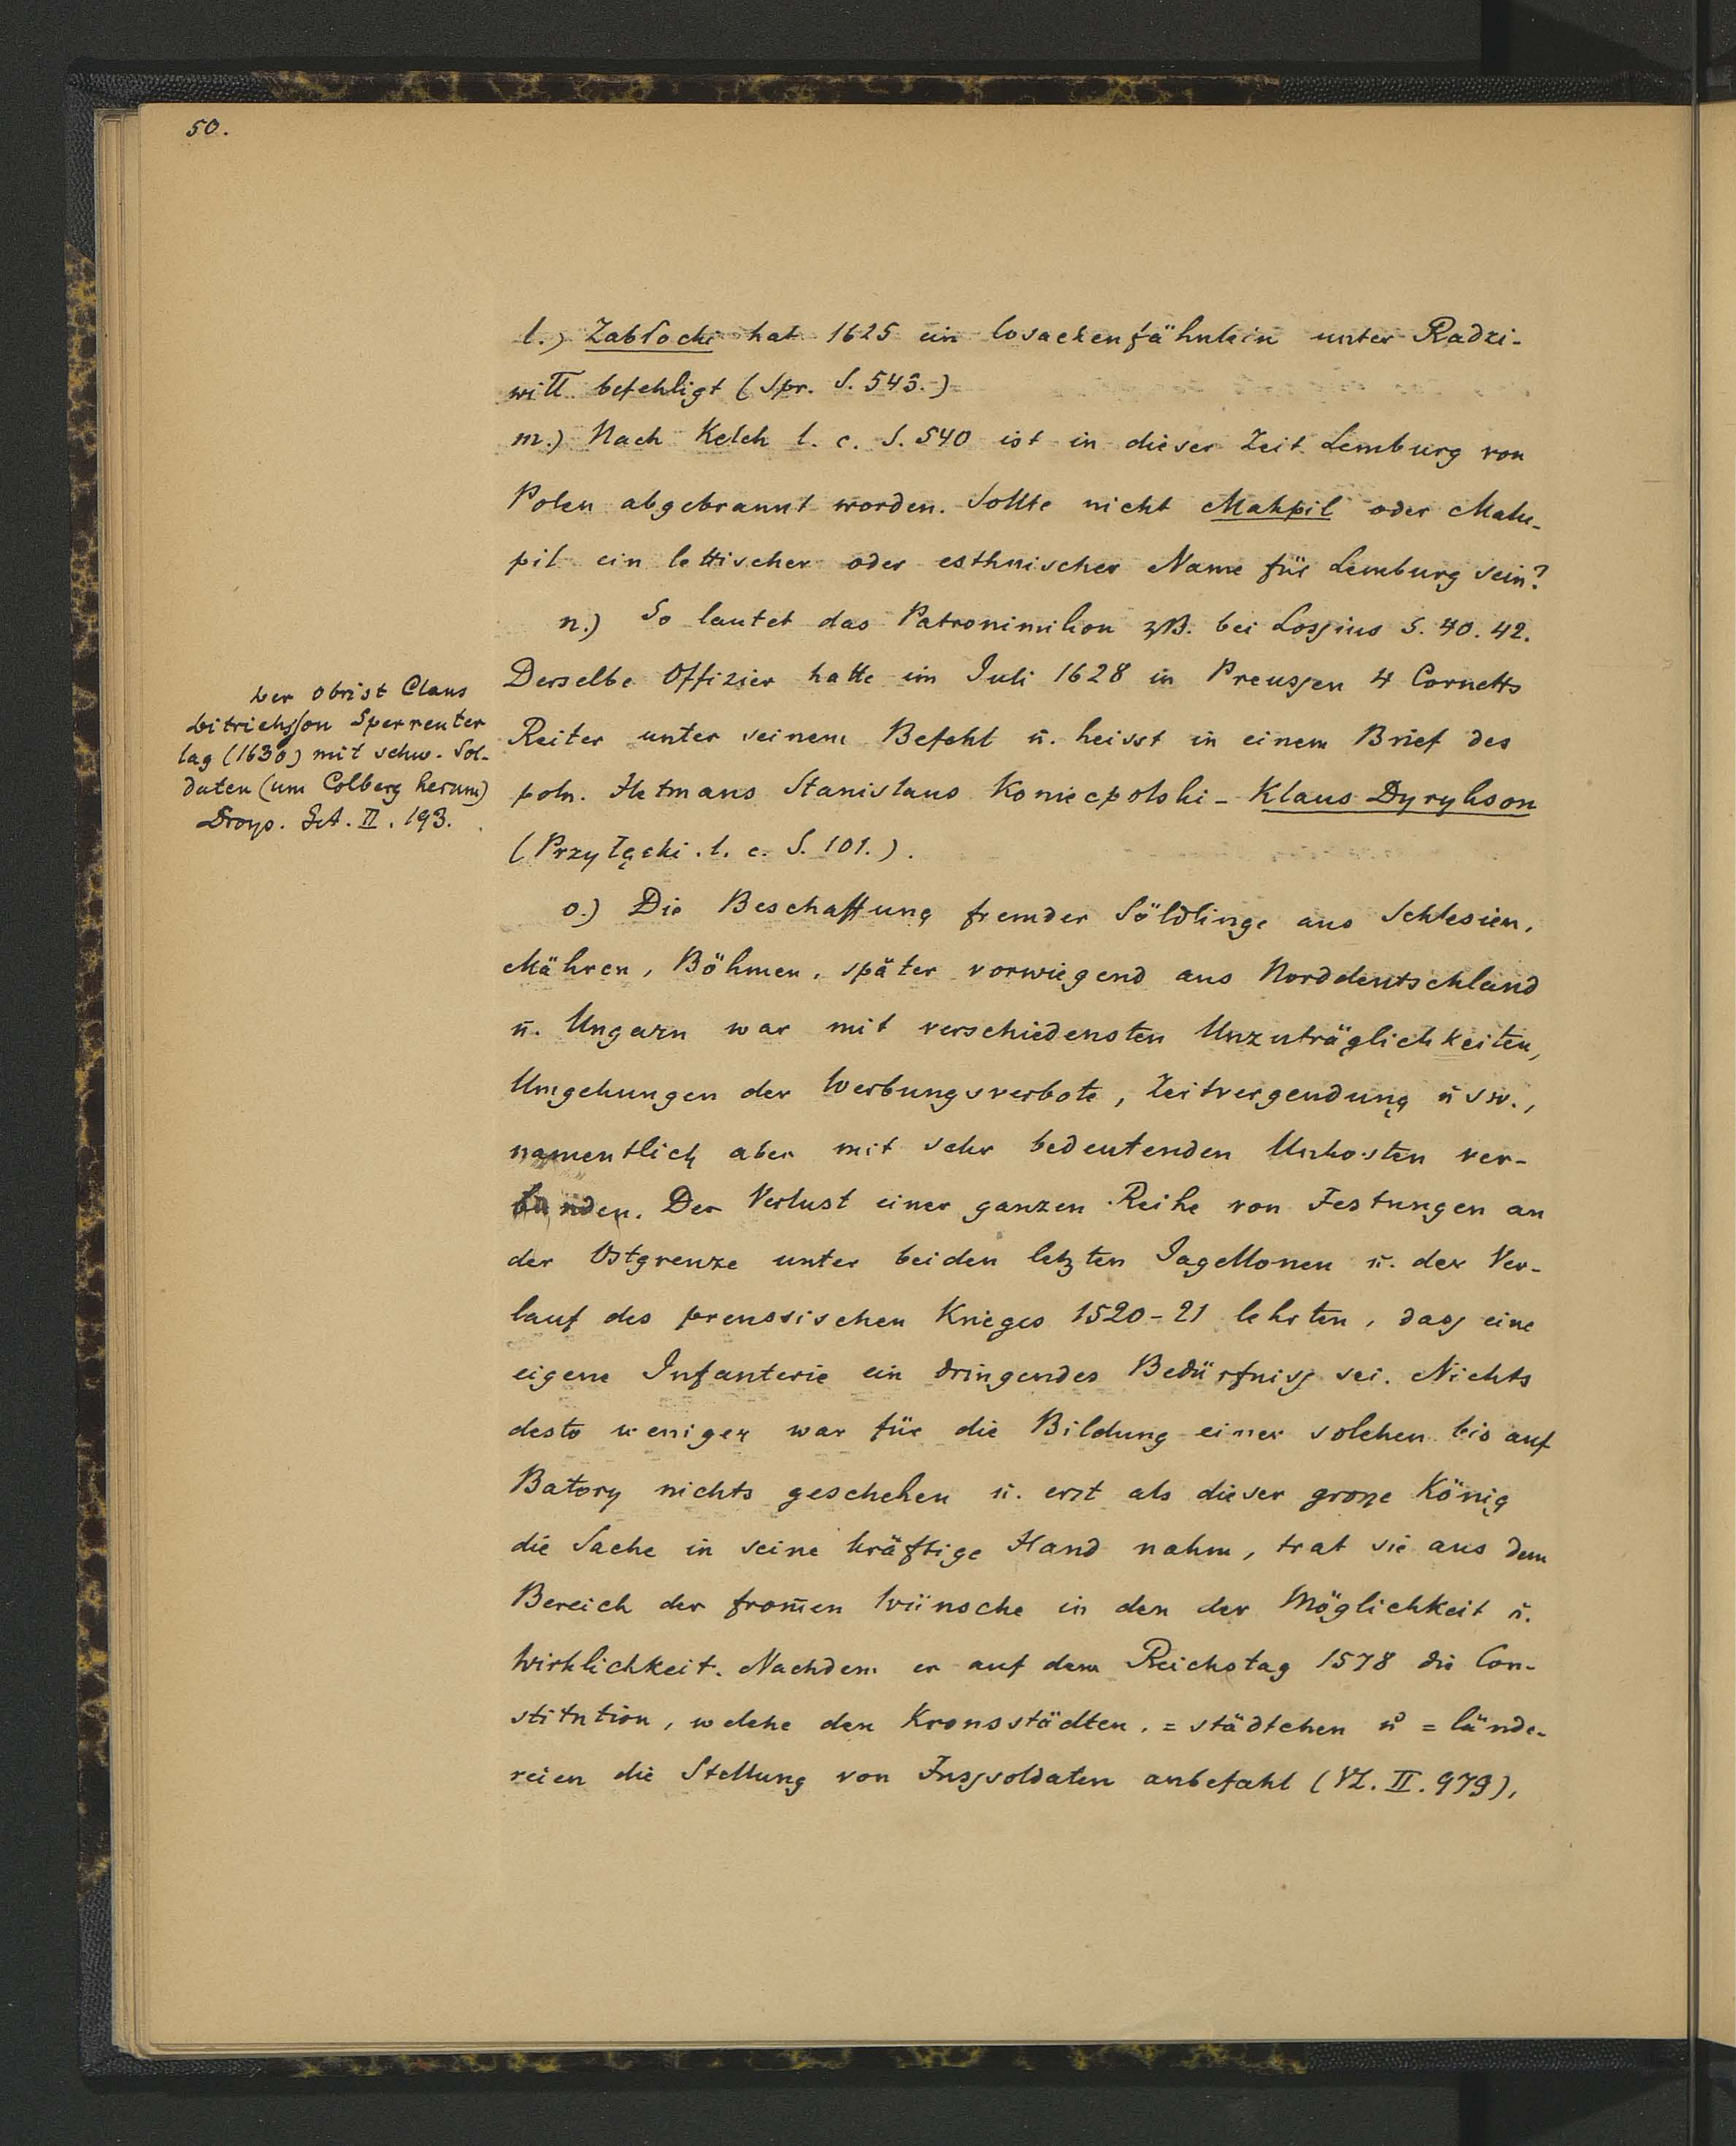 50.
l.) Zabłocki hat 1625 ein Cosackenfähnlein unter Radzi-
wiłł befehligt (Spr. S. 543.)
m.) Nach Kelch l. c. S. 540 ist in dieser Zeit Lemburg von
Polen abgebrannt worden. Sollte nicht Mahpil oder Malu-
pil ein lettischer oder esthnischer Name für Lemburg sein?
n.) So lautet das Patronimikon zB. bei Lossius S. 40. 42.
Derselbe Offizier hatte im Juli 1628 in Preussen 4 Cornetts
Reiter unter seinem Befehl ū. heisst in einem Brief des
poln. Hetmans Stanislaus Koniecpolski - Klaus Dyrykson
(Przyłęcki. l. c. S. 101.).
Der Obrist Claus
Ditrichsson Sperreuter
lag (1630) mit schw. Sol-
daten (um Colberg herum)
Droys. G.A. II. 193.
o.) Die Beschaffung fremder Söldlinge aus Schlesien,
Mähren, Böhmen, später vorwiegend aus Norddeutschland
ū. Ungarn war mit verschiedensten Unzuträglichkeiten,
Umgehungen der Werbungsverbote, Zeitvergendung ū sw.,
namentlich aber mit sehr bedeutenden Unkosten ver-
bunden. Der Verlust einer ganzen Reihe von Festungen an
der Ostgrenze unter beiden letzten Jagellonen ū. der Ver-
lauf des preussischen Krieges 1520-21 lehrten, dass eine
eigene Infanterie ein dringendes Bedürfniss sei. Nichts
desto weniger war für die Bildung einer solchen bis auf
Batory nichts geschehen ū. erst als dieser grosse König
die Sache in seine kräftige Hand nahm, trat sie aus dem
Bereich der from̄en Wünsche in den der Möglichkeit ū.
Wirklichkeit. Nachdem er auf dem Reichstag 1578 die Con-
stitution, welche den Kronsstädten, =städtchen ū =lände-
reien die Stellung von Fussoldaten anbefahl (VL. II. 979),